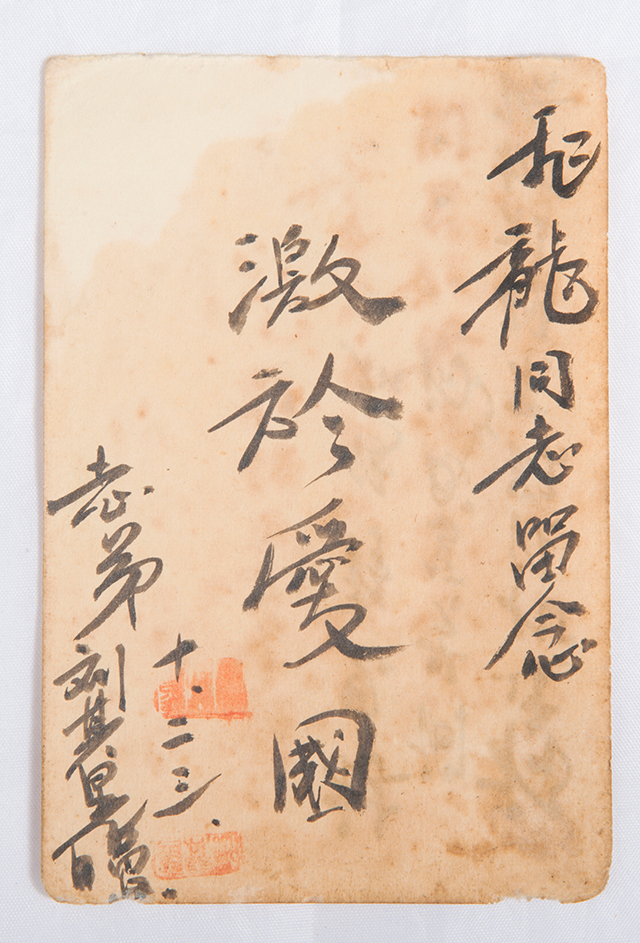 飛龍同志留念
激於愛國
志弟劉其
十.二三.